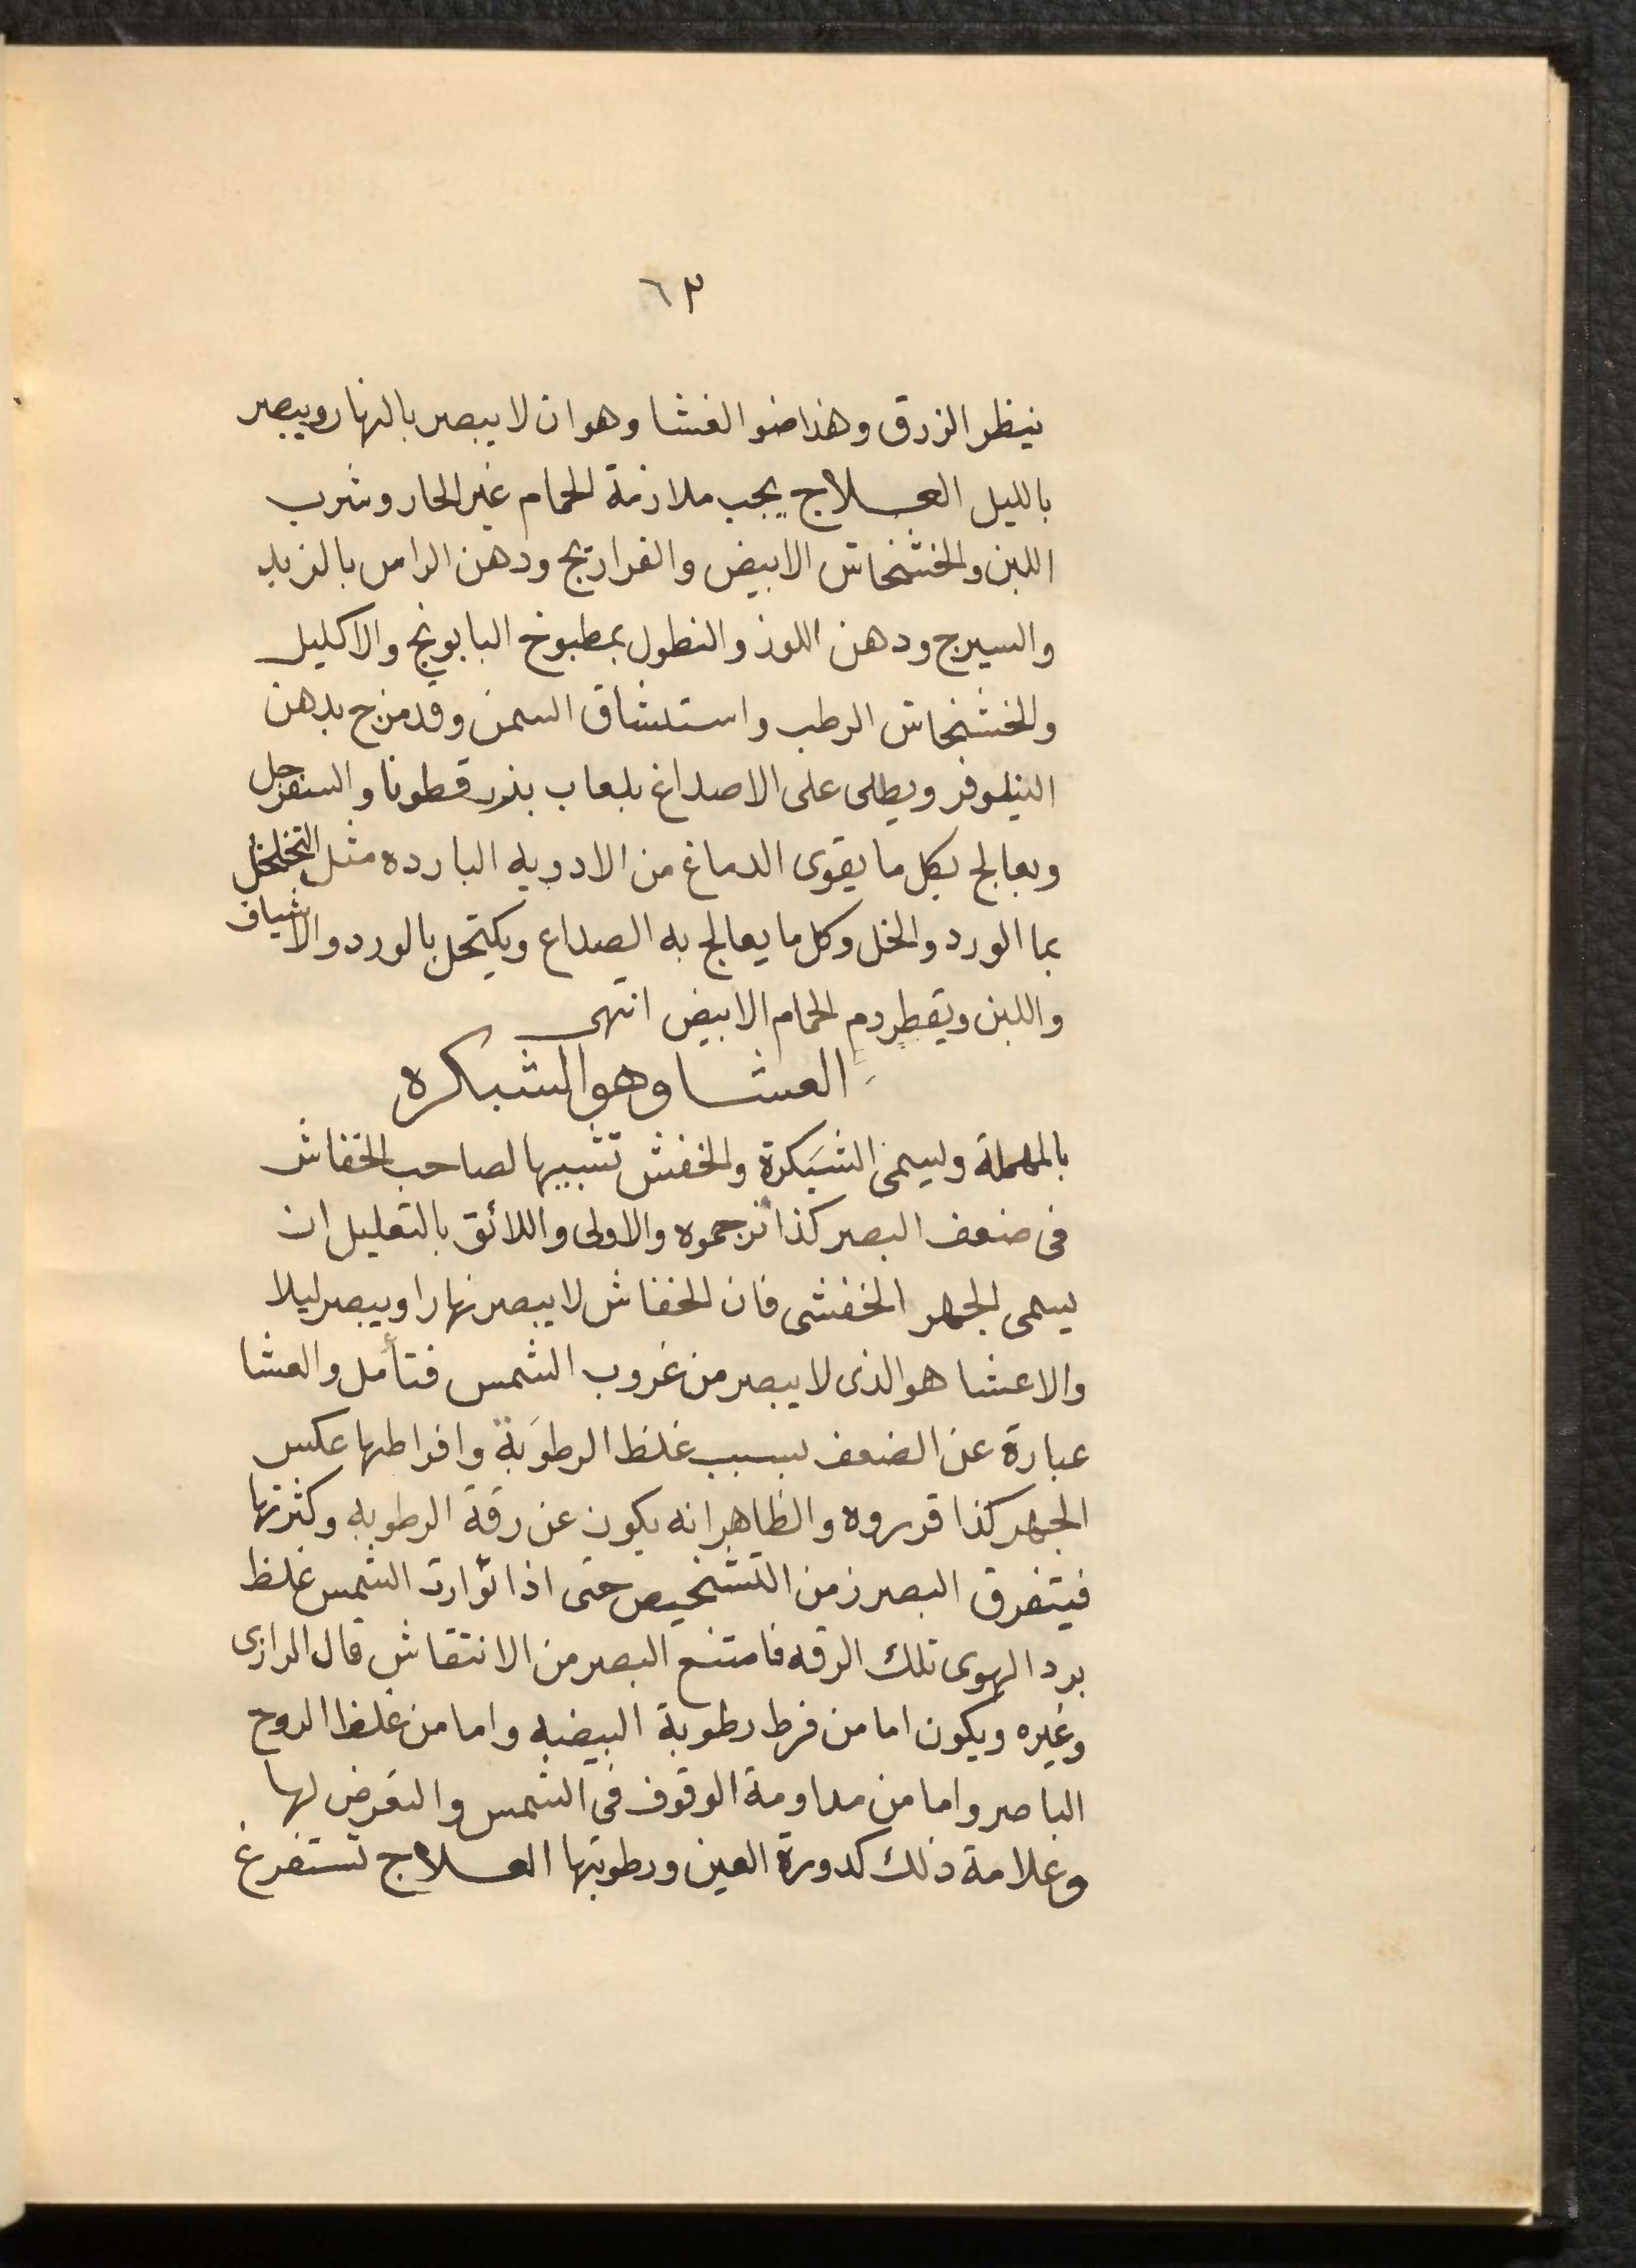 ٦٣
نيظر الزرق وهذا ضو الغشا وهو ان لا يبصر بالنهار ويبصر
بالليل العـلاج يجب ملازمة الحمام غير الحار وشرب
اللبن والخشخاش الابيض والفراريج ودهن الراس بالزبد
والسيرج ودهن اللوز والنطول بمطبوخ البابونج والاكليل
والخشخاش الرطب واستنشاق السمن وقد مزج بدهن
النيلوفر ويطلى على الاصداغ بلعاب بذر قطونا والسفرجل
ويعالج بكل ما يقوى الدماغ من الادويه البارده مثل التخلخل
بما الورد والخل وكل ما يعالج به الصداع ويكتحل بالورد والاشياف
واللبن ويقطر دم الحمام الابيض انتهى
العشا وهو الشبكره
بالمهملة ويسمى الشبكرة والخفش تشبيها لصاحب الخفاش
فى ضعف البصر كذا ترجموه والاولى واللائق بالتعليل ان
يسمى الجهر الخفشى فان الخفاش لا يبصر نهارا ويبصر ليلا
والاعشا هو الذى لا يبصر من غروب الشمس فتأمل والعشا
عبارة عن الضعف بسبب غلظ الرطوبة وافراطها عكس
الجهر كذا قرروه والظاهر انه يكون عن رقة الرطوبه وكثرتها
فيتفرق البصر زمن التشخيص حتى اذا توارت الشمس غلظ
برد الهوى تلك الرقه فامتنع البصر من الانتقاش قال الرازى
وغيره ويكون اما من فرط رطوبة البيضيه واما من غلظ الروح
الباصر واما من مداومة الوقوف فى الشمس والتعرض لها
وعلامة ذلك كدورة العين ورطوبتها العـلاج تستفرغ